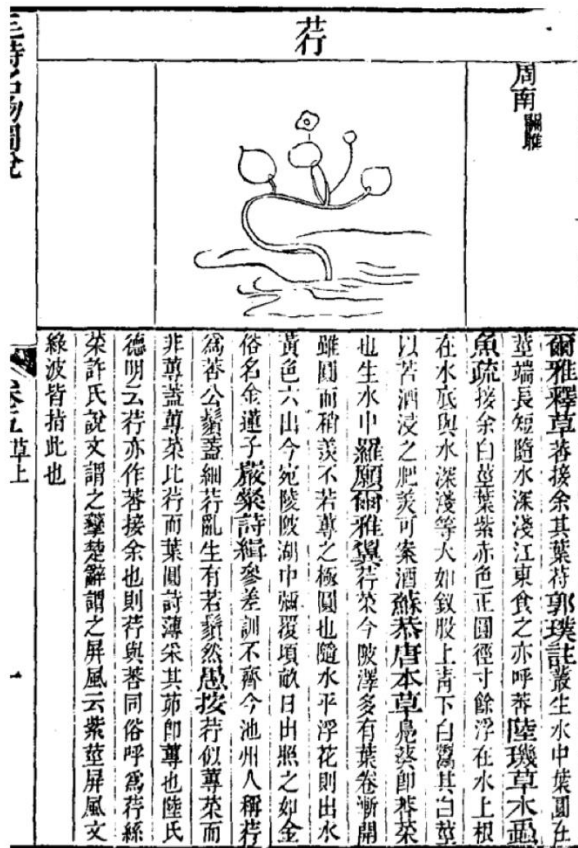 荇
周南 關雎
爾雅釋草莕接余其葉苻郭璞註叢生水中葉圓在
莖端長短隨水深淺江東食之亦呼莕陸璣草木蟲
魚疏接余白莖葉紫赤色正圓徑寸餘浮在水上根
在水底與水深淺等大如釵股上青下白鬻其白莖
以苦酒浸之肥美可案酒蘇恭唐本草鳧葵即莕菜
也生水中羅願爾雅翼荇菜今陂澤多有葉卷漸開
雖圓而稍羨不若蓴之極圓也隨水平浮花則出水
黃色六出今宛陵陂湖中彌覆頃畝日出照之如金
俗名金蓮子嚴粲詩緝參差訓不齊今池州人稱荇
為莕公鬚蓋細荇亂生有若鬚然愚按荇似蓴菜而
非蓴蓋蓴菜比荇而葉圓詩薄采其茆即蓴也陸氏
德明云荇亦作莕接余也則荇與莕同俗呼為荇絲
菜許氏說文謂之䕯楚辭謂之屏風云紫莖屏風文
綠波皆指此也
毛詩名物圖說
卷五 草上
一